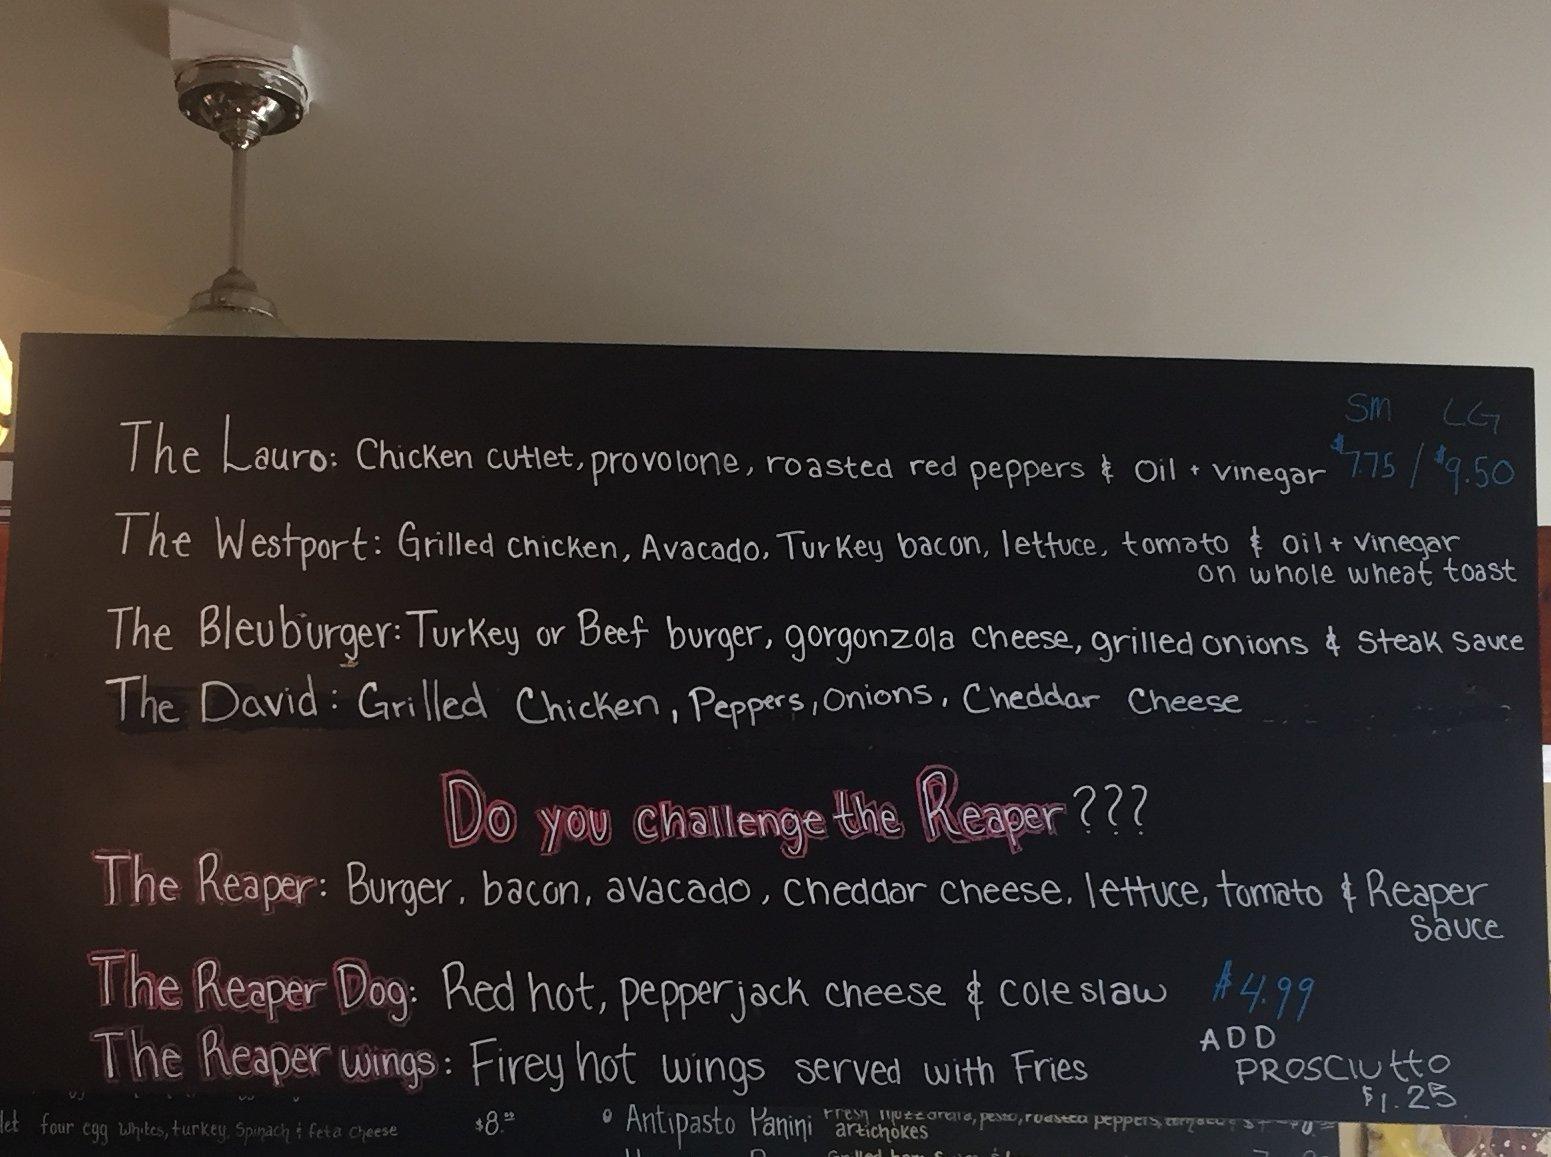 SM LG
The Lauro: Chicken cutlet, provolone, roasted red peppers & oil + vinegar $7.75 / $9.50
The Westport: Grilled chicken, Avacado, Turkey bacon, lettuce, tomato & oil + vinegar
on whole wheat toast
The Bleuburger: Turkey or Beef burger, gorgonzola cheese, grilled onions & steak sauce
The David: Grilled Chicken, Peppers, onions, Cheddar Cheese
Do you challenge the Reaper???
The Reaper: Burger, bacon, avacado, cheddar cheese, lettuce, tomato & Reaper
sauce
The Reaper Dog: Red hot, pepperjack cheese & cole slaw $4.99
The Reaper wings: Firey hot wings served with Fries
ADD
PROSCIUTTO
$1.25
four egg whites, turkey, spinach & feta cheese $8.
Antipasto Panini Fresh mozzarella, pesto, roasted peppers,
artichokes